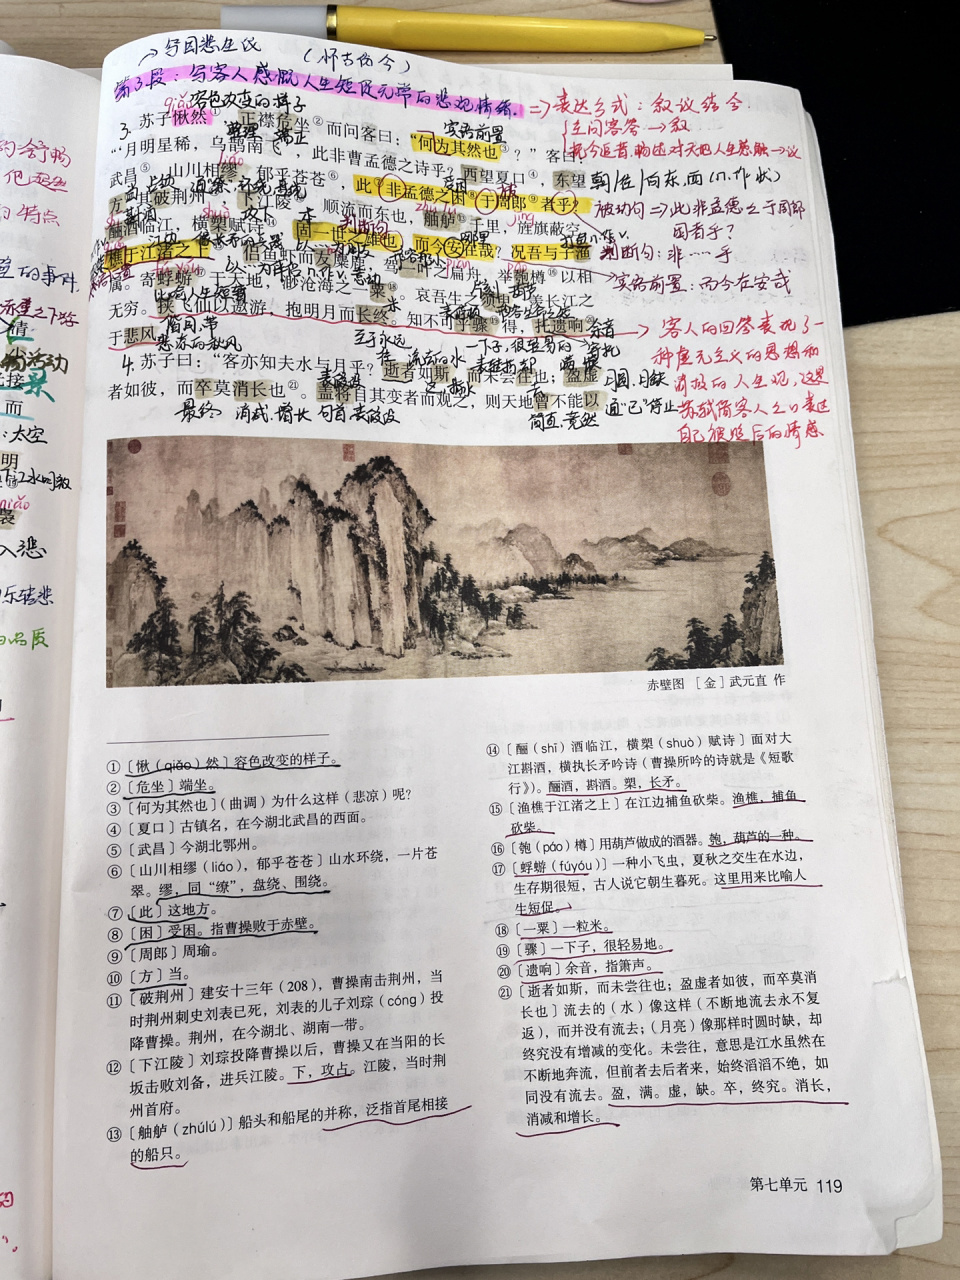 →写因悲生议 (怀古伤今)
第3段:写客人感慨人生短促无常的悲观情绪.
⇒表达方式:叙议结合
主问客答→叙
qiǎo 容色改变的样子
3. 苏子愀然①,正襟危坐②而问客曰:“何为其然也③?”客曰:
整理 端正
宾语前置
“‘月明星稀,乌鹊南飞’,此非曹孟德之诗乎?西望夏口④,东望
朝/在/向东、西(n.作状)
liáo
武昌⑤,山川相缪,郁乎苍苍⑥,此⑦非孟德之困⑧于周郎⑨者乎?
被动句⇒此非孟德之于周郎
困者乎?
方⑩其破荆州⑪,下江陵⑫,顺流而东也,舳舻⑬千里,旌旗蔽空,
酾酒临江,横槊赋诗⑭,固一世之雄也,而今安在哉?况吾与子渔
判断句:非……乎
樵于江渚之上⑮,侣鱼虾而友麋鹿,驾一叶之扁舟,举匏樽⑯以相
宾语前置:而今在安哉
属。寄蜉蝣⑰于天地,渺沧海之一粟⑱。哀吾生之须臾,羡长江之
无穷。挟飞仙以遨游,抱明月而长终。知不可乎骤⑲得,托遗响⑳
于悲风。”
→客人的回答表现了一
种虚无主义的思想和
消极的人生观,这是
苏轼借客人之口表达
自己被贬后的情感
至于永远
一下子,很轻易的
4. 苏子曰:“客亦知夫水与月乎?逝者如斯,而未尝往也;盈虚
者如彼,而卒莫消长也㉑。盖将自其变者而观之,则天地曾不能以
通“已”停止
最终 消减、增长 句首表议发
简直、竟然
赤壁图 [金]武元直 作
①〔愀(qiǎo)然〕容色改变的样子。
②〔危坐〕端坐。
③〔何为其然也〕(曲调)为什么这样(悲凉)呢?
④〔夏口〕古镇名,在今湖北武昌的西面。
⑤〔武昌〕今湖北鄂州。
⑥〔山川相缪(liáo),郁乎苍苍〕山水环绕,一片苍
翠。缪,同“缭”,盘绕、围绕。
⑦〔此〕这地方。
⑧〔困〕受困。指曹操败于赤壁。
⑨〔周郎〕周瑜。
⑩〔方〕当。
⑪〔破荆州〕建安十三年(208),曹操南击荆州,当
时荆州刺史刘表已死,刘表的儿子刘琮(cóng)投
降曹操。荆州,在今湖北、湖南一带。
⑫〔下江陵〕刘琮投降曹操以后,曹操又在当阳的长
坂击败刘备,进兵江陵。下,攻占。江陵,当时荆
州首府。
⑬〔舳舻(zhúlú)〕船头和船尾的并称,泛指首尾相接
的船只。
⑭〔酾(shī)酒临江,横槊(shuò)赋诗〕面对大
江斟酒,横执长矛吟诗(曹操所吟的诗就是《短歌
行》)。酾酒,斟酒。槊,长矛。
⑮〔渔樵于江渚之上〕在江边捕鱼砍柴。渔樵,捕鱼
砍柴。
⑯〔匏(páo)樽〕用葫芦做成的酒器。匏,葫芦的一种。
⑰〔蜉蝣(fúyóu)〕一种小飞虫,夏秋之交生在水边,
生存期很短,古人说它朝生暮死。这里用来比喻人
生短促。
⑱〔一粟〕一粒米。
⑲〔骤〕一下子,很轻易地。
⑳〔遗响〕余音,指箫声。
㉑〔逝者如斯,而未尝往也;盈虚者如彼,而卒莫消
长也〕流去的(水)像这样(不断地流去永不复
返),而并没有流去;(月亮)像那样时圆时缺,却
终究没有增减的变化。未尝往,意思是江水虽然在
不断地奔流,但前者去后者来,始终滔滔不绝,如
同没有流去。盈,满。虚,缺。卒,终究。消长,
消减和增长。
第七单元 119